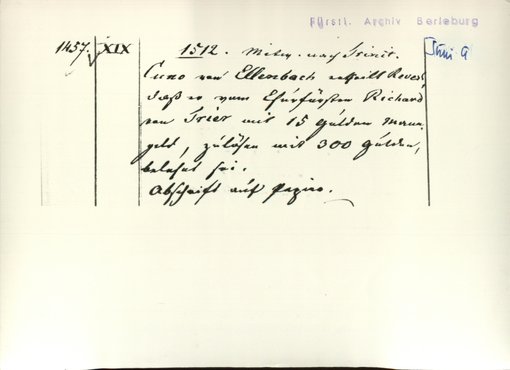 Fürstl. Archiv Berleburg
1457. XIX 1512. Mittw. nach Trinit. Juni 9
Cuno von Ellenbach ertheilt Revers,
daß er vom Churfürsten Richard
von Trier mit 15 Gulden Mann-
geld, zulösen mit 300 Gulden,
belehnt sei.
Abschrift auf Papier.